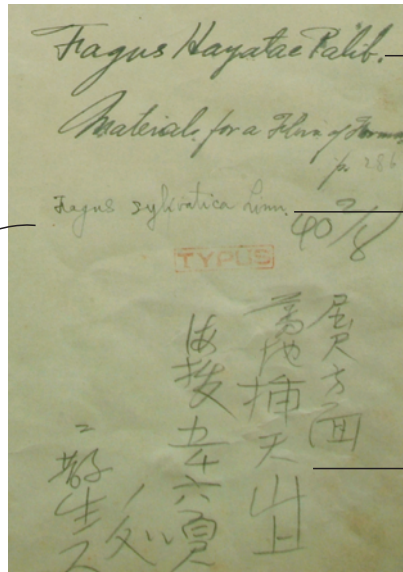 Fagus Hayatae Palib.
Materials for a Flora of Formosa
p. 286
Fagus sylvatica Linn.
TYPUS
方面
挿天山上
海拔五千六
ニ散生ス